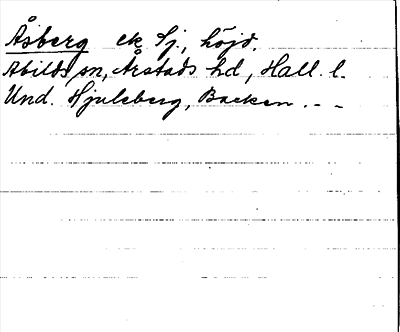 Åsberg ek Sj., höjd.
Abilds sn, Årstads hd, Hall. l.
Und. Hjuleberg, Backen. - -